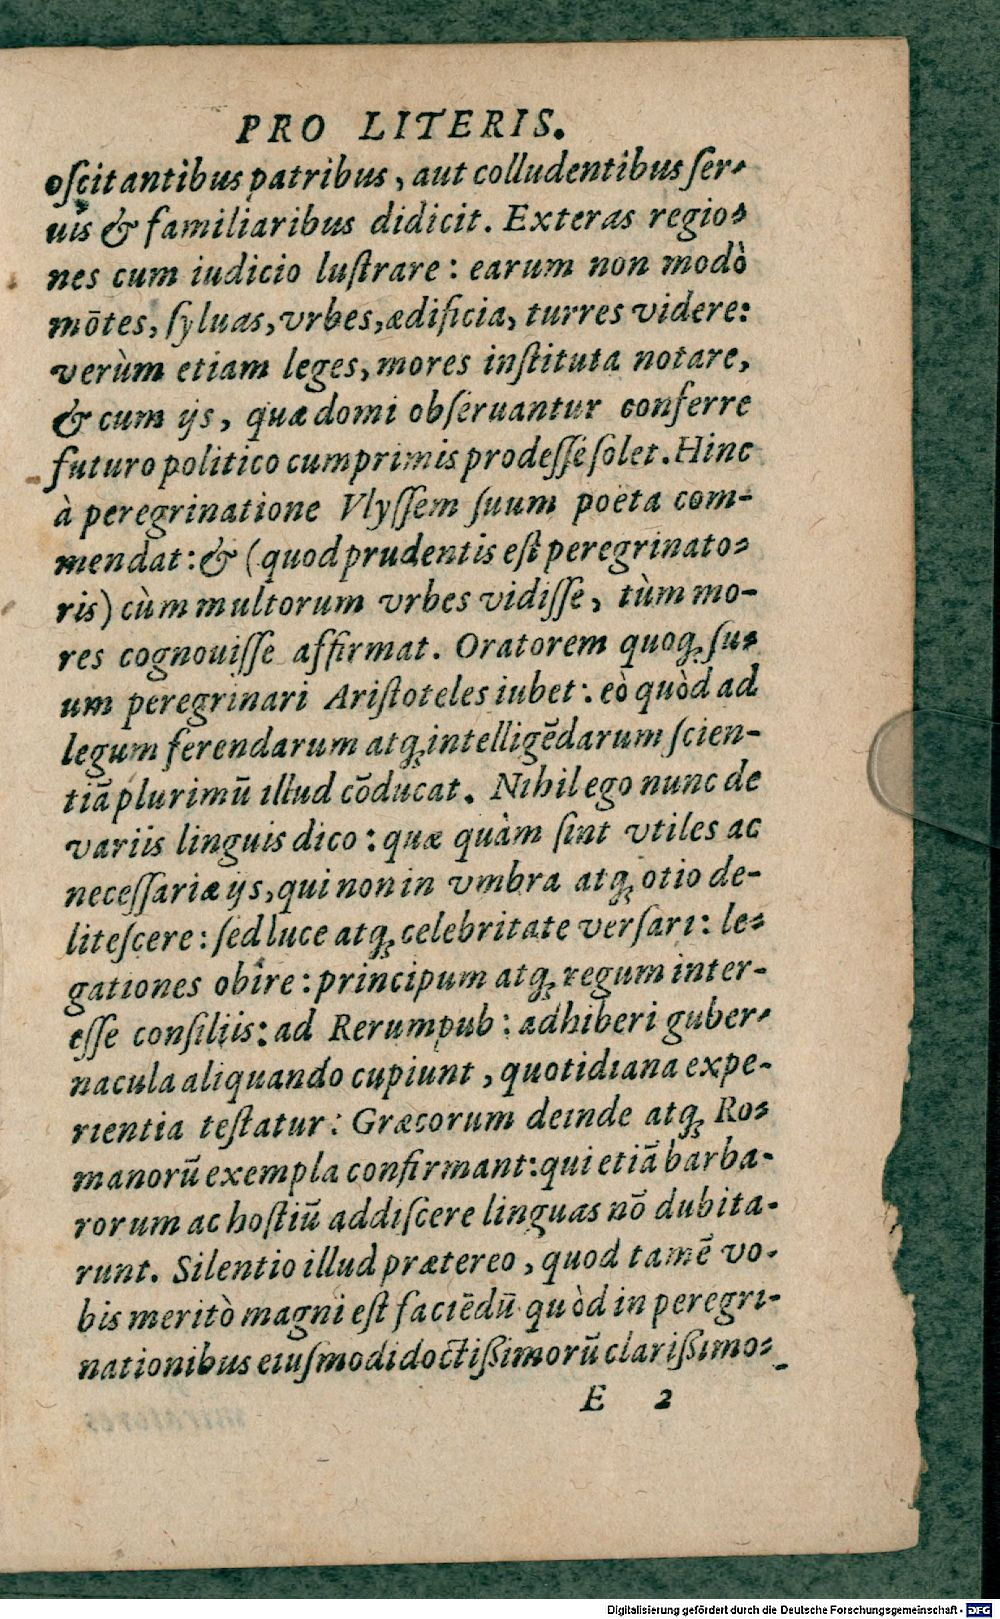 PRO LITERIS.
oſcitantibus patribus, aut colludentibus ſer-
uis & familiaribus didicit. Exteras regio-
nes cum iudicio luſtrare: earum non modò
mōtes, ſyluas, vrbes, ædificia, turres videre:
verùm etiam leges, mores inſtituta notare,
& cum ijs, quæ domi obſeruantur conferre
futuro politico cumprimis prodeſſe ſolet. Hinc
à peregrinatione Vlyſſem ſuum poëta com-
mendat: & (quod prudentis eſt peregrinato-
ris) cùm multorum vrbes vidiſſe, tùm mo-
res cognouiſſe affirmat. Oratorem quoq; ſu-
um peregrinari Ariſtoteles iubet: eò quòd ad
legum ferendarum atq; intelligēdarum ſcien-
tiā plurimū illud cōducat. Nihil ego nunc de
variis linguis dico: quæ quàm ſint vtiles ac
neceſſariæ ijs, qui non in vmbra atq; otio de-
liteſcere: ſed luce atq; celebritate verſari: le-
gationes obire: principum atq; regum inter-
eſſe conſiliis: ad Rerumpub: adhiberi guber-
nacula aliquando cupiunt, quotidiana expe-
rientia teſtatur: Græcorum deinde atq; Ro-
manorū exempla confirmant: qui etiā barba-
rorum ac hoſtiū addiſcere linguas nō dubita-
runt. Silentio illud prætereo, quod tamē vo-
bis meritò magni eſt faciēdū quòd in peregri-
nationibus eiuſmodi doctißimorū clarißimo-
E 2
Digitalisierung gefördert durch die Deutsche Forschungsgemeinschaft - DFG